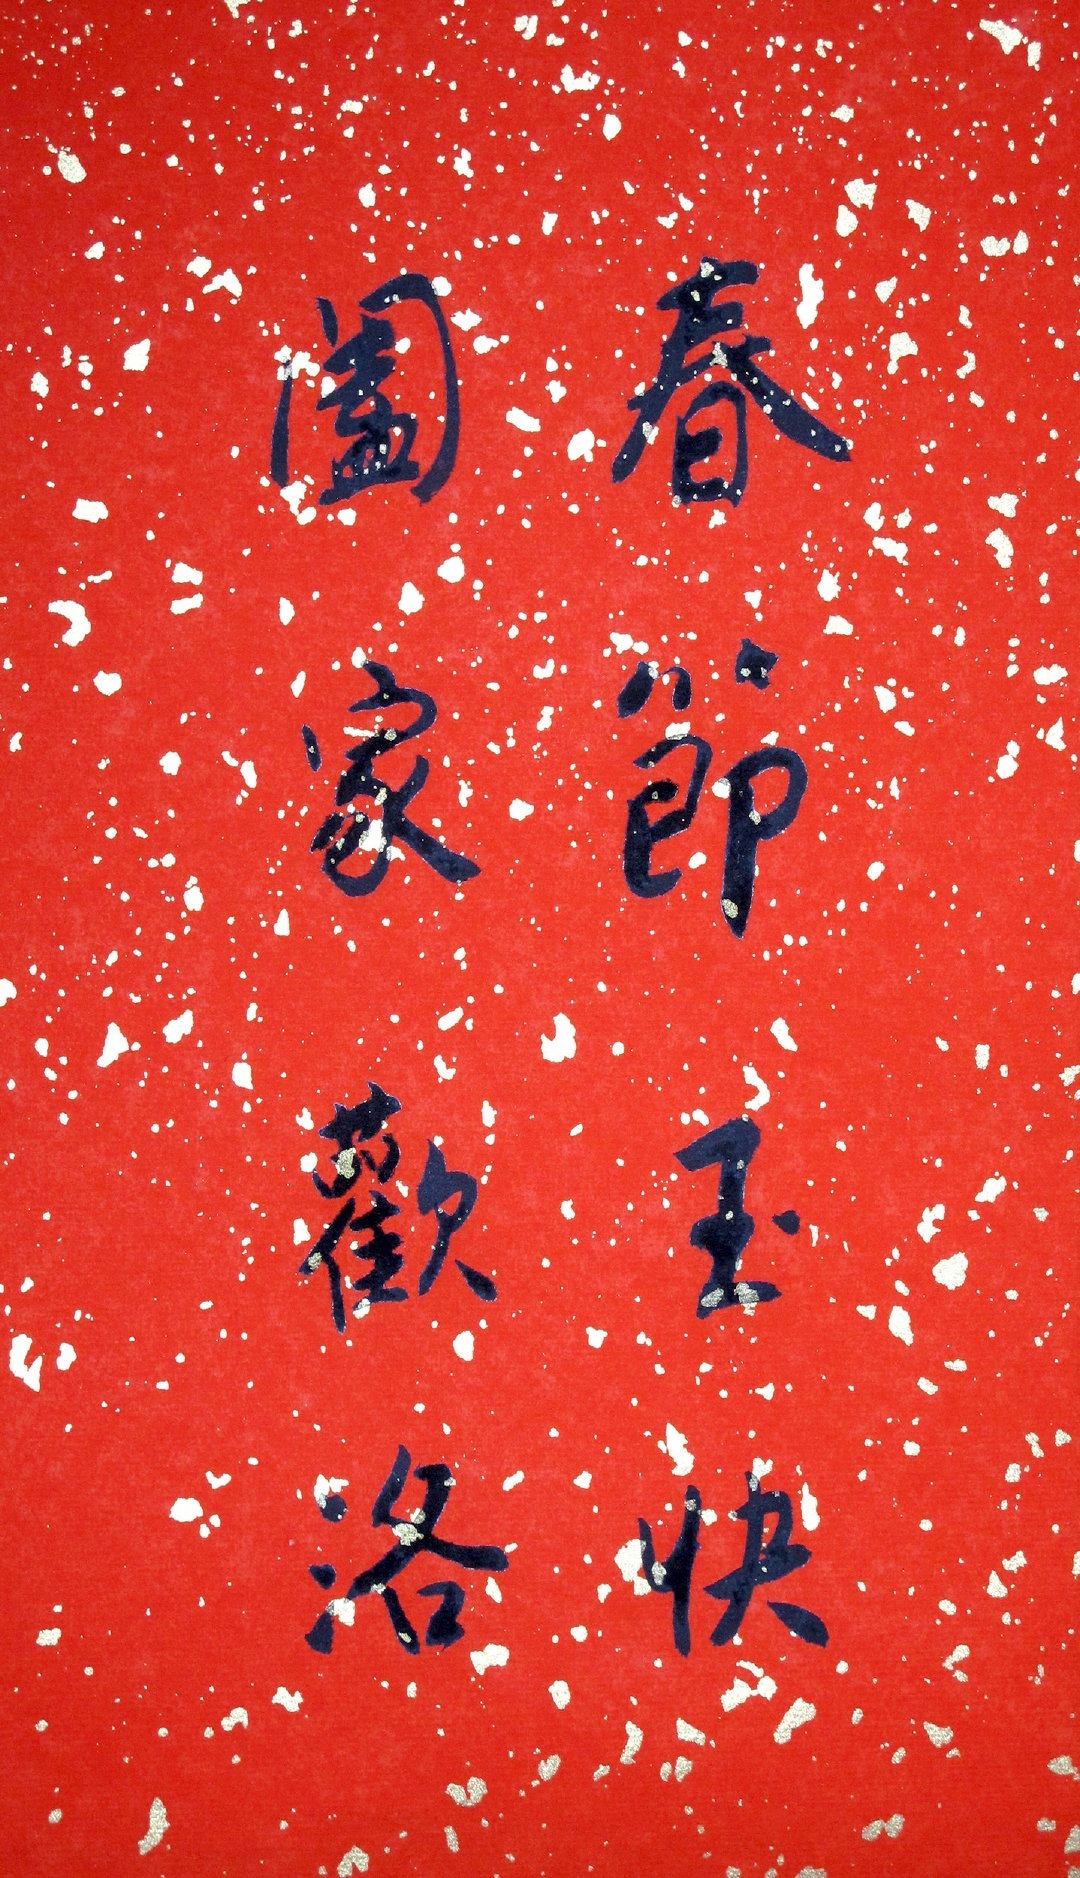 春節玉快
闔家歡洛